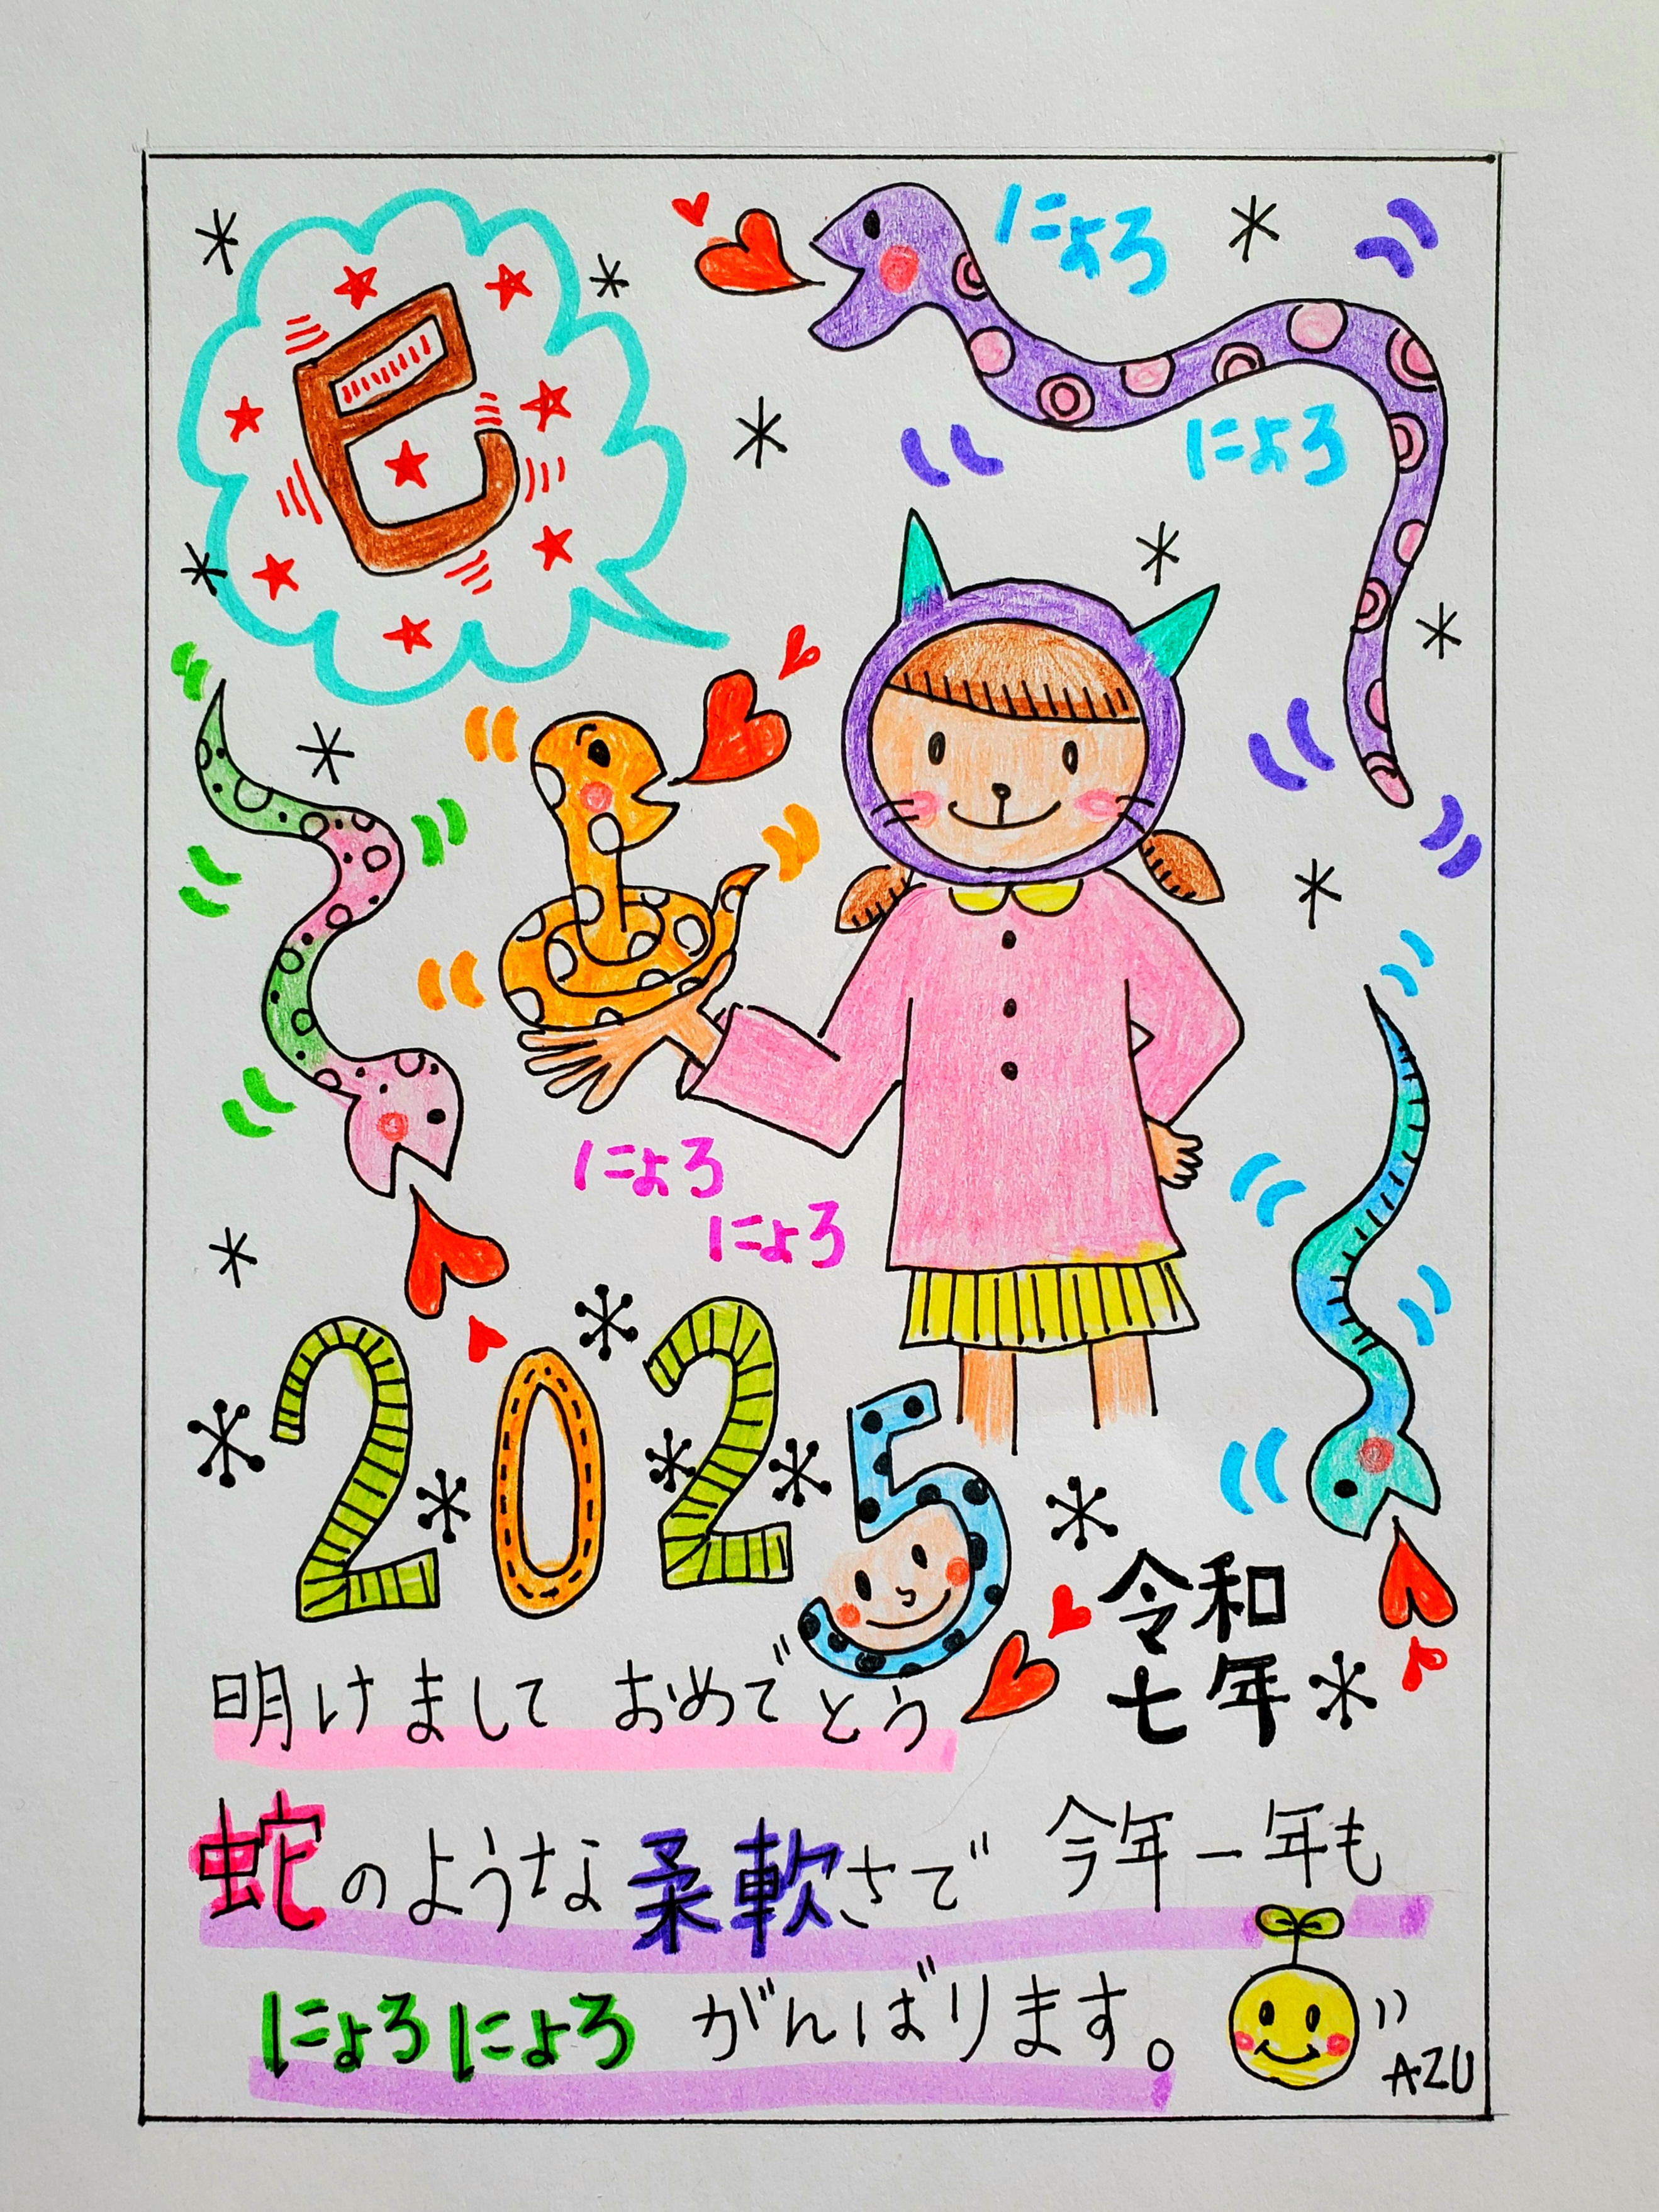 巳
にょろ
にょろ
にょろ
にょろ
2025
令和
七年
明けまして おめでとう
蛇のような柔軟さで 今年一年も
にょろにょろ がんばります。
AZU